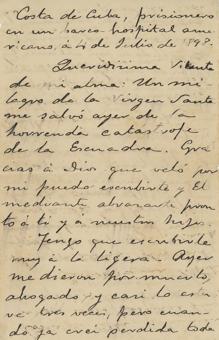 Costa de Cuba, prisionero
en un barco hospital ame-
ricano, á 4 de Julio de 1898.
Queridísima
de mi alma: Un mi-
lagro de la Virgen Santa
me salvó ayer de la
horrenda catástrofe
de la Escuadra. Gra-
cias á Dios que veló por
mí puedo escribirte y El
mediante abrazarte pron-
to á ti y a nuestro hijo.
Tengo que escribirte
muy á la ligera. Ayer
me dieron por muerto,
ahogado y casi lo estu-
ve tres veces, pero cuan-
do ya creí perdida toda